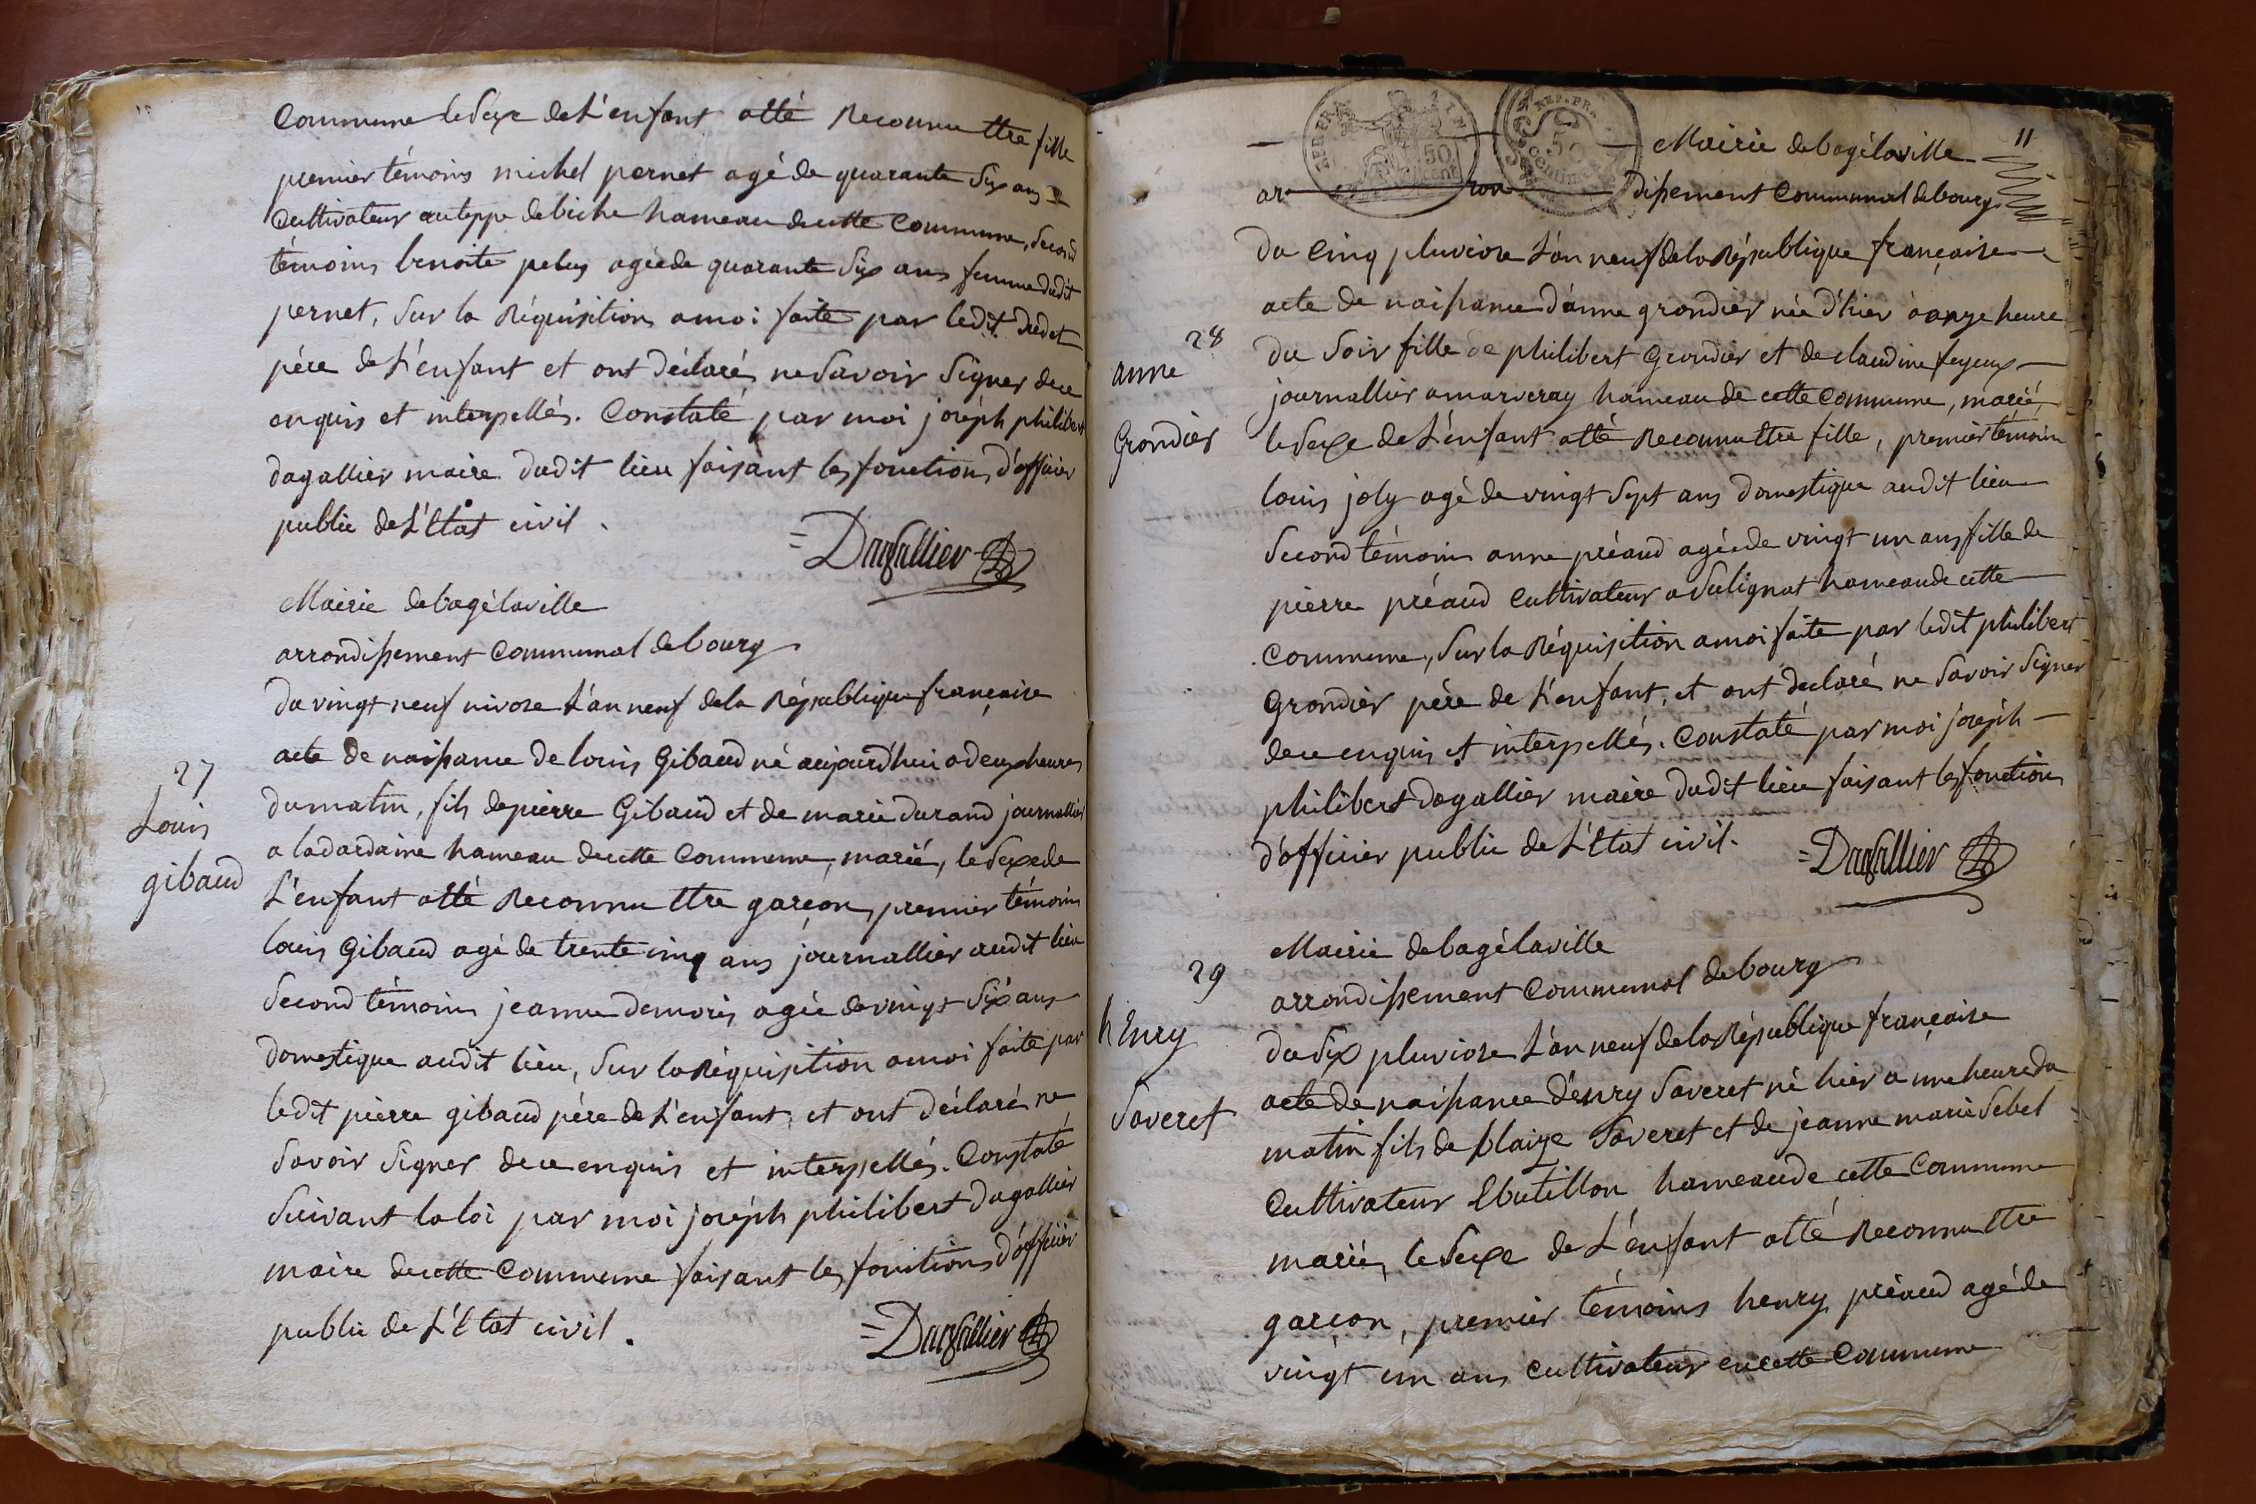 Commune le Sexe de L'enfant atté Reconnu ttre fille
premier témoins michel pernet agé de quarante Six ans
Cultivateur auteppe de biche hameau de cette Commune, Second
témoins benoite pelus agée de quarante Six ans femme dudit
pernet, Sur la Réquisition amoi faite par ledit
pére de L'enfant et ont déclaré ne Savoir Signer de ce
enquis et interpellés. Constaté par moi joséph philibert
dagallier maire dudit lieu faisant les fonctions d'officier
public de L'Etat civil.
=Dagallier
Mairie de bagélaville
arrondissement Communal de bourg
27
Louis
gibaud
du vingt neuf nivose L'an neuf de la République française
acte de naissance de louis Gibaud né aujourd'hui a deux heures
du matin, fils de pierre Gibaud et de marie durand journallier
a ladardaine hameau de cette Commune, marié, le Sexe de
L'enfant atté Reconnu ttre garçon, premier témoins
louis Gibaud agé de trente cinq ans journallier audit lieu
Second témoins jeanne demoris agée de vingt Six ans
domestique audit lieu, Sur la Réquisition amoi faite par
ledit pierre gibaud pére de L'enfant, et ont déclaré ne
Savoir Signer de ce enquis et interpellés. Constaté
Suivant la loi par moi joséph philibert dagallier
maire de cette Commune faisant les fonctions d'officier
public de L'Etat civil.
=Dagallier
11
REP. FR.
50
centimes
Mairie de bagélaville
arrondissement Communal de bourg
28
anne
Grondier
du Cinq pluviose L'an neuf de la République française
acte de naissance d'anne grondier née d'hier à onze heure
du Soir fille de philibert Grondier et de claudine feyeux
journallier a marveray hameau de cette Commune, marié,
le Sexe de L'enfant atté Reconnu ttre fille, premier témoin
louis joly agé de vingt Sept ans domestique audit lieu
Second témoins anne préaud agée de vingt un ans fille de
pierre préaud Cultivateur a Sulignat hameau de cette
Commune, Sur la Réquisition amoi faite par ledit philibert
Grondier pére de L'enfant, et ont declaré ne Savoir Signer
de ce enquis et interpellés. Constaté par moi joséph
philibert dagallier maire dudit lieu faisant les fonctions
d'officier public de L'Etat civil.
=Dagallier
Mairie de bagélaville
arrondissement Communal de bourg
29
hEnry
Saveret
du Six pluviose L'an neuf de la République française
acte de naissance d'Enry Saveret né hier a une heure du
matin fils de blaize Saveret et de jeanne marie Sebel
Cultivateur Ebutillon hameau de cette Commune
marié, le Sexe de L'enfant atté Reconnu ttre
garçon, premier témoins henry préaud agé de
vingt un ans Cultivateur en cette Commune